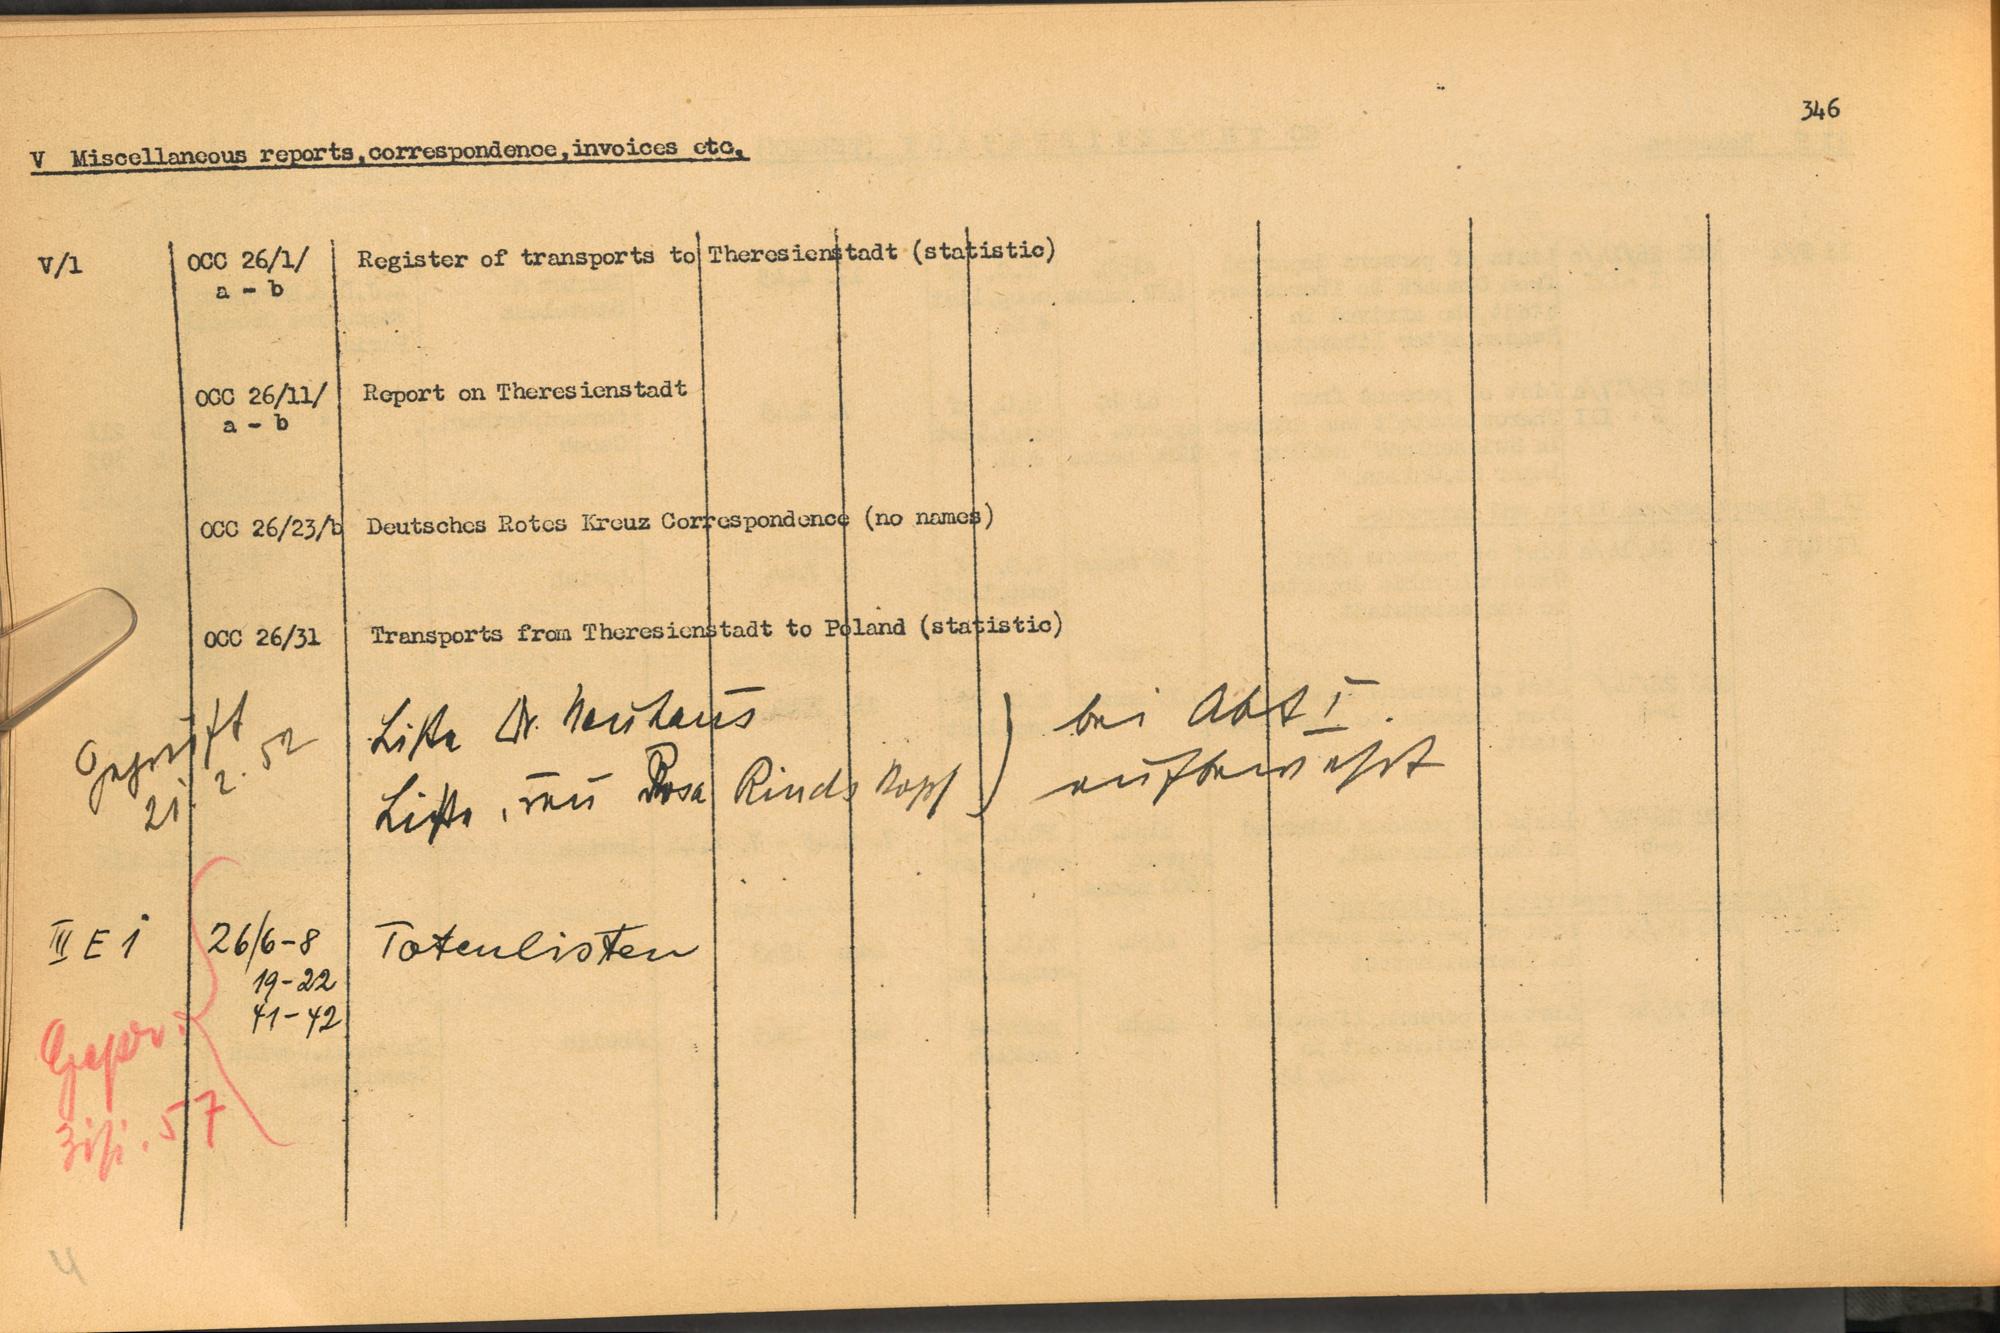 346
V Miscellaneous reports,correspondence,invoices etc.
V/1 OCC 26/1/ Register of transports to Theresienstadt (statistic)
a - b
OCC 26/11/ Report on Theresienstadt
a - b
OCC 26/23/b Deutsches Rotes Kreuz Correspondence (no names)
OCC 26/31 Transports from Theresienstadt to Poland (statistic)
Geprüft
21. 2. 52
Liste Dr. Neuhaus ) bei Abt I.
Liste Rosa Rindskopf ) aufbewahrt
III E 1 26/6-8 Totenlisten
19-22
41-42
Gepr.
57
4